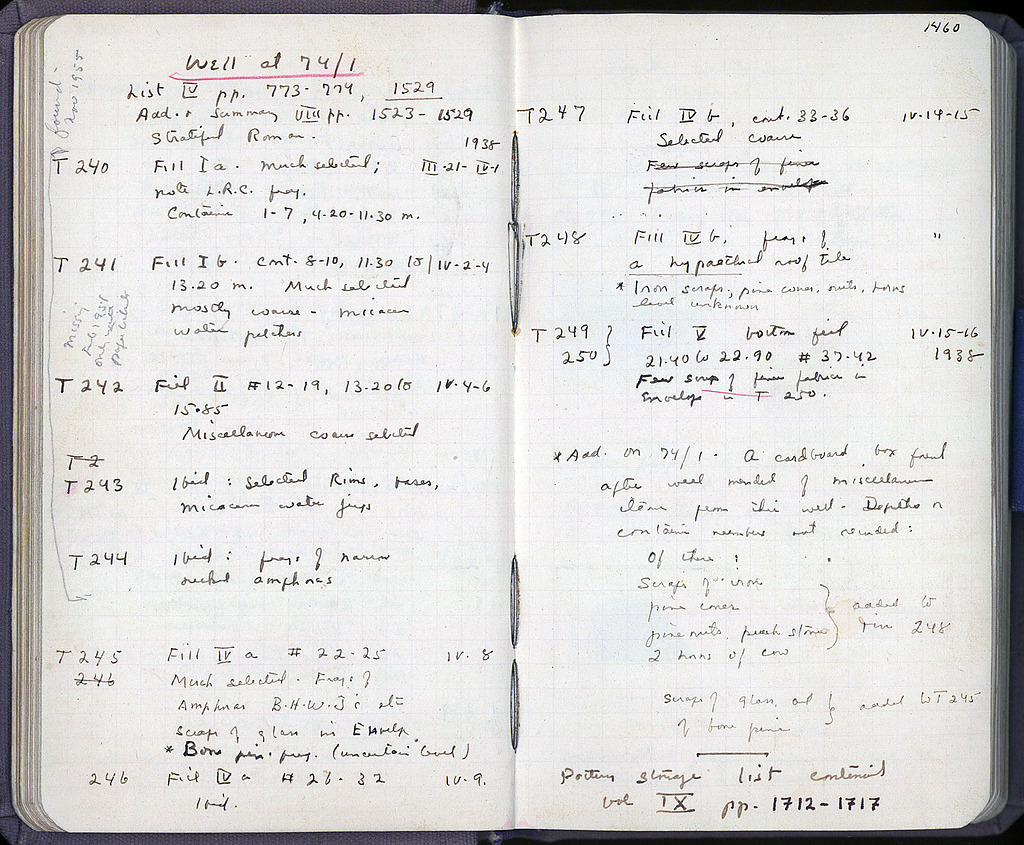 Well at 74/1
List IV pp. 773-774, 1529
Add. + Summary VIII pp. 1523-1529
Stratified Roman.
1938
T 240 Fill I a. Much selected; III-21-IV-1
note L.R.C. frag.
Contains 1-7, 4.20-11.30 m.
T 241 Fill I b. Cont. 8-10, 11.30 to IV-2-4
13.20 m. Much selected
mostly coarse - micaceous
water pitchers
T 242 Fill II #12-19, 13.20 to IV-4-6
15.85
Miscellaneous coarse selected
T 2
T 243 Ibid: selected Rims, bases,
micaceous water jugs
T 244 Ibid: frags of narrow
necked amphoras
T 245 Fill IV a #22-25 IV.8
246 Much selected. Frags of
Amphoras B.H.W.J's etc
scraps of glass in Envelope
* Bone pin, frag. (uncertain level)
246 Fill IV a #26-32 IV.9.
Ibid.
found -
Nov 1955
missing
Feb 1951
one with
paper label
1460
T 247 Fill IV b, cont. 33-36 IV-14-15
Selected coarse
Few scraps of fine
fabric in envelope
T 248 Fill IV b, frags of "
a hypaethral roof tile
* Iron scraps, pine cones, nuts, horns
level unknown
T 249 } Fill V bottom fill IV.15-16
250 } 21.40 to 22.90 #37-42 1938
Few scraps of finer fabric in
Envelope in T 250.
* Add. on 74/1. A cardboard box found
after well mended of miscellaneous
items from this well - Depths or
container numbers not recorded:
Of these:
Scraps of iron
pine cones } added to
pine nuts, peach stones } tin 248
2 horns of cow
Scraps of glass, and } added to T 245
of bone pins
Pottery storage list continued
vol IX pp. 1712-1717